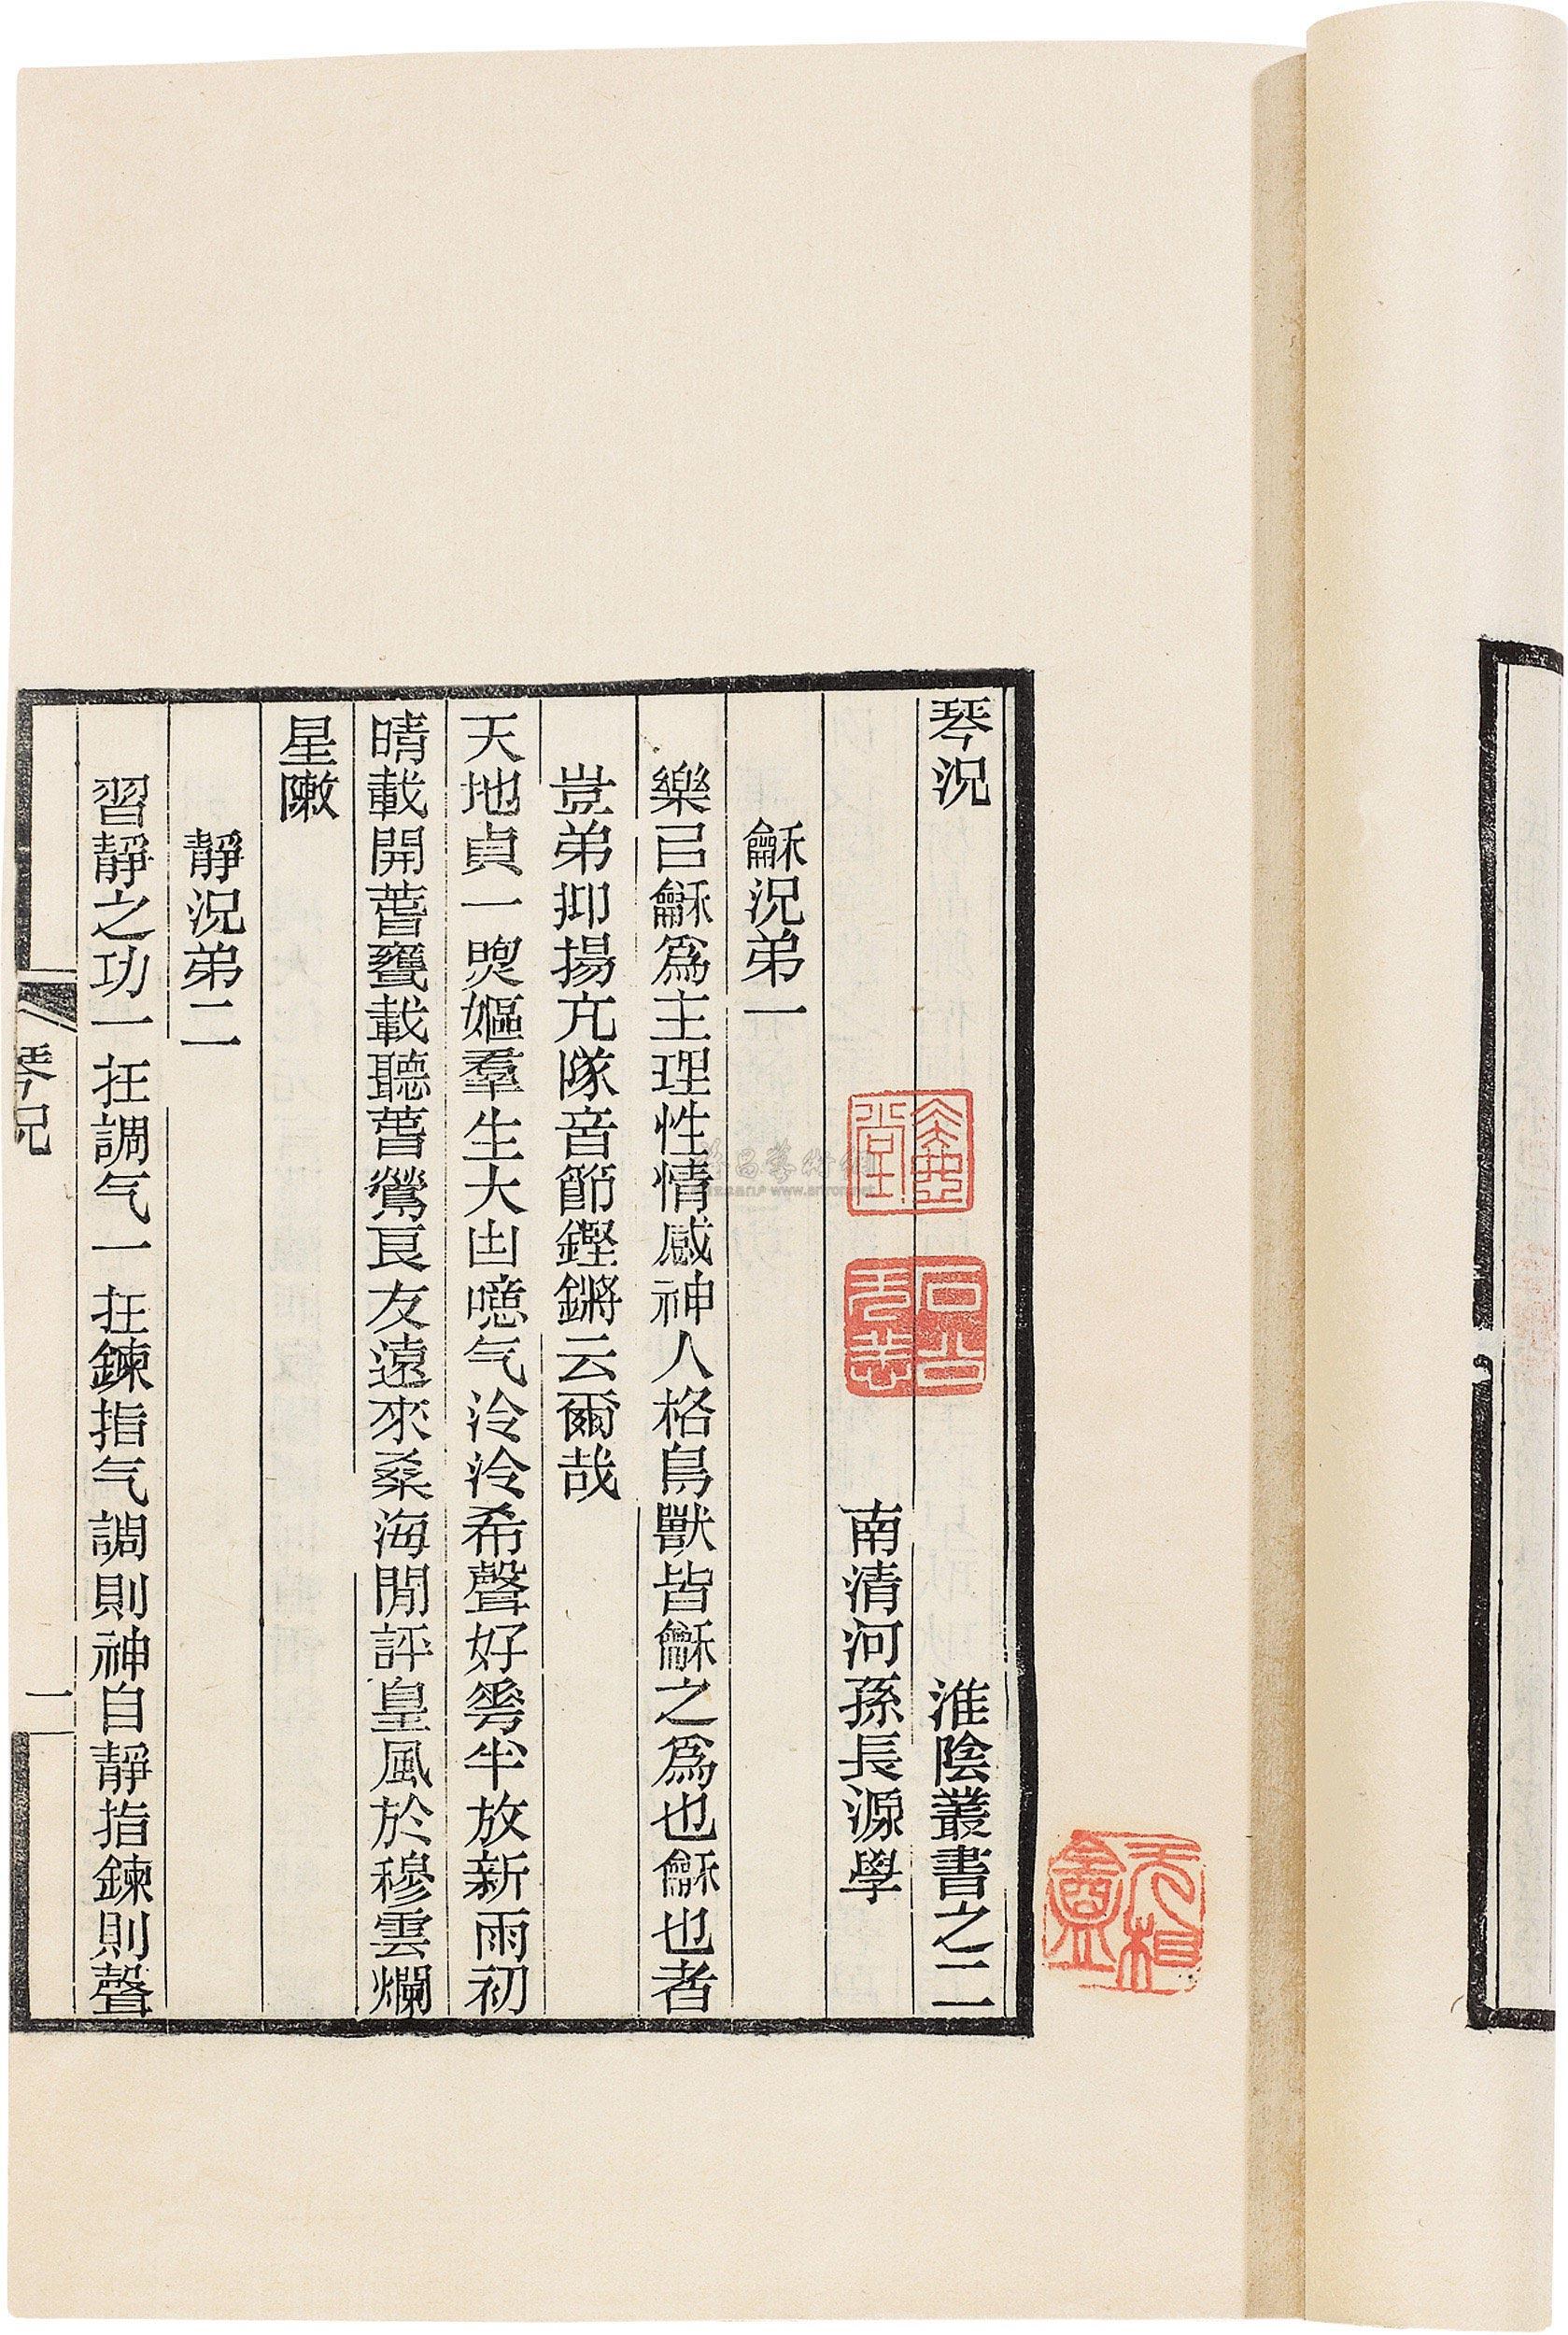 琴況　淮陰叢書之二
南清河孫長源學
龢況弟一
樂㠯龢爲主理性情感神人格鳥獸皆龢之爲也龢也者
豈弟抑揚亢隊音節鏗鏘云爾哉
天地貞一煗嫗羣生大凷噫气泠泠希聲好雩半放新雨初
晴載開蒈甕載聽蒈鶯良友遠來桑海閒評皇風於穆雲爛
星敶
靜況弟二
習靜之功一在調气一在鍊指气調則神自靜指鍊則聲
琴況
二